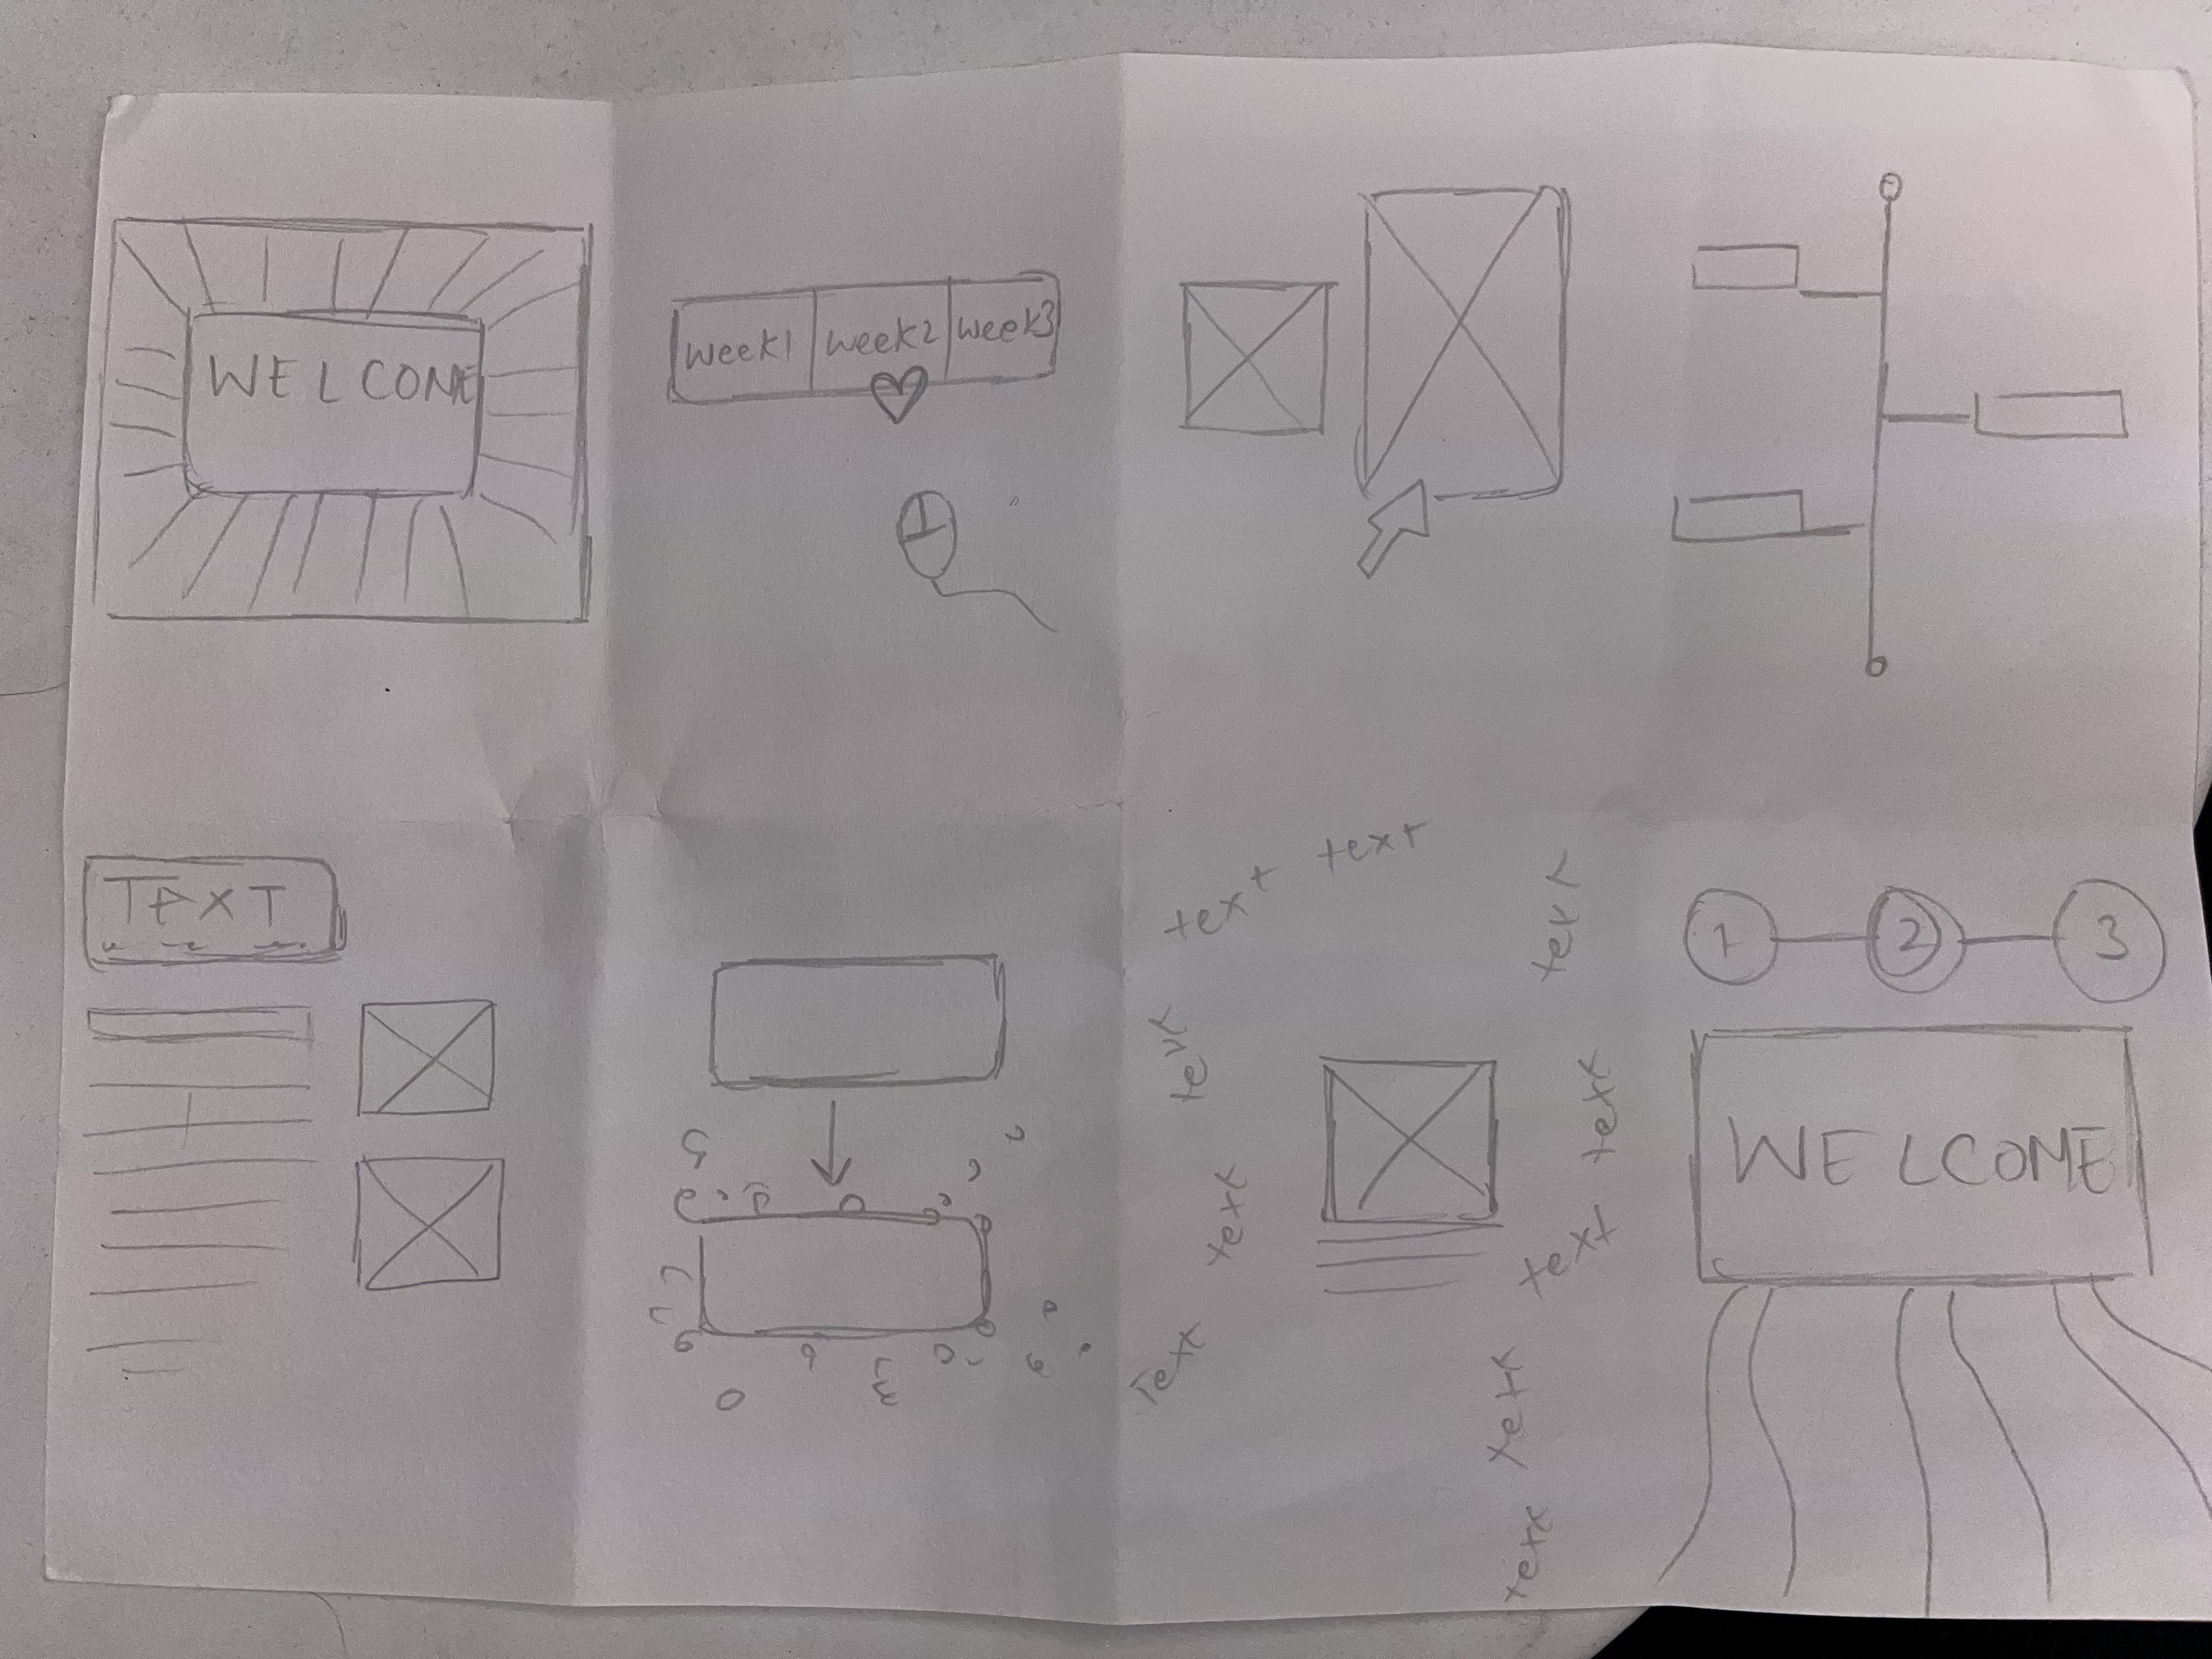 WELCOME
week1 week2 week3
TEXT
text text
text
text
text
text
text
text
text
text
text
1 2 3
WELCOME